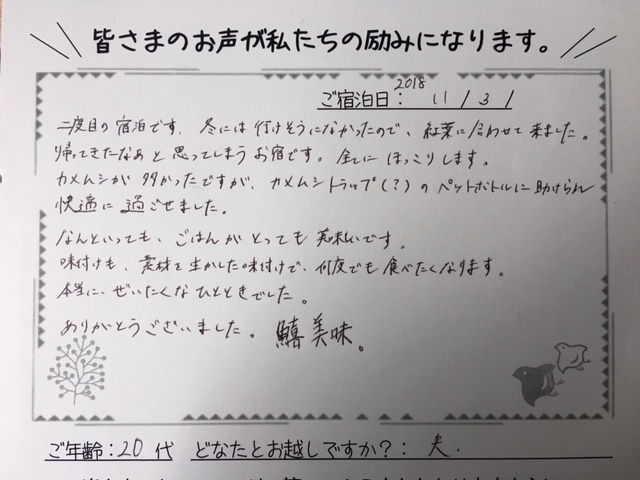 皆さまのお声が私たちの励みになります。
ご宿泊日: 2018 11 / 3 /
二度目の宿泊です。冬には行けそうになかったので、紅葉に合わせて来ました。
帰ってきたなあと思ってしまうお宿です。全てにほっこりします。
カメムシが多かったですが、カメムシトラップ(?)のペットボトルに助けられ
快適に過ごせました。
なんといっても、ごはんがとっても美味いです。
味付けも、素材を生かした味付けで、何度でも食べたくなります。
本当に、ぜいたくなひとときでした。
ありがとうございました。鱚美味。
ご年齢:20代 どなたとお越しですか?: 夫.